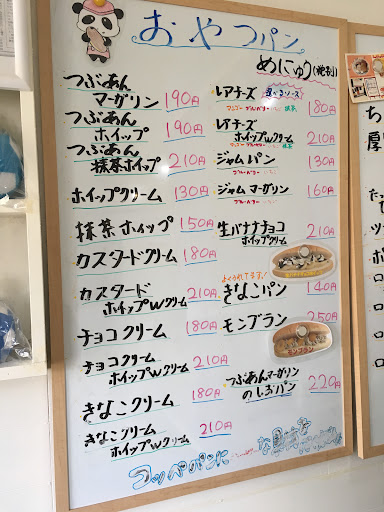 おやつパン
めにゅう(税別)
つぶあん
マーガリン 190円
つぶあん
ホイップ 190円
つぶあん
抹茶ホイップ 210円
ホイップクリーム 130円
抹茶ホイップ 150円
カスタードクリーム 180円
カスタード
ホイップWクリーム 210円
チョコクリーム 180円
チョコクリーム
ホイップWクリーム 210円
きなこクリーム 180円
きなこクリーム
ホイップWクリーム 210円
レアチーズ 選べるソース
マンゴー ブルーベリー いちご 抹茶 180円
レアチーズ
ホイップWクリーム 210円
マンゴー ブルーベリー いちご 抹茶
ジャムパン 130円
ブルーベリー いちご
ジャムマーガリン 160円
ブルーベリー いちご
生バナナチョコ
ホイップクリーム 210円
よくうれてます!
きなこパン 140円
モンブラン 250円
モンブラン
つぶあんマーガリン
のしぶパン 220円
コッペパンに